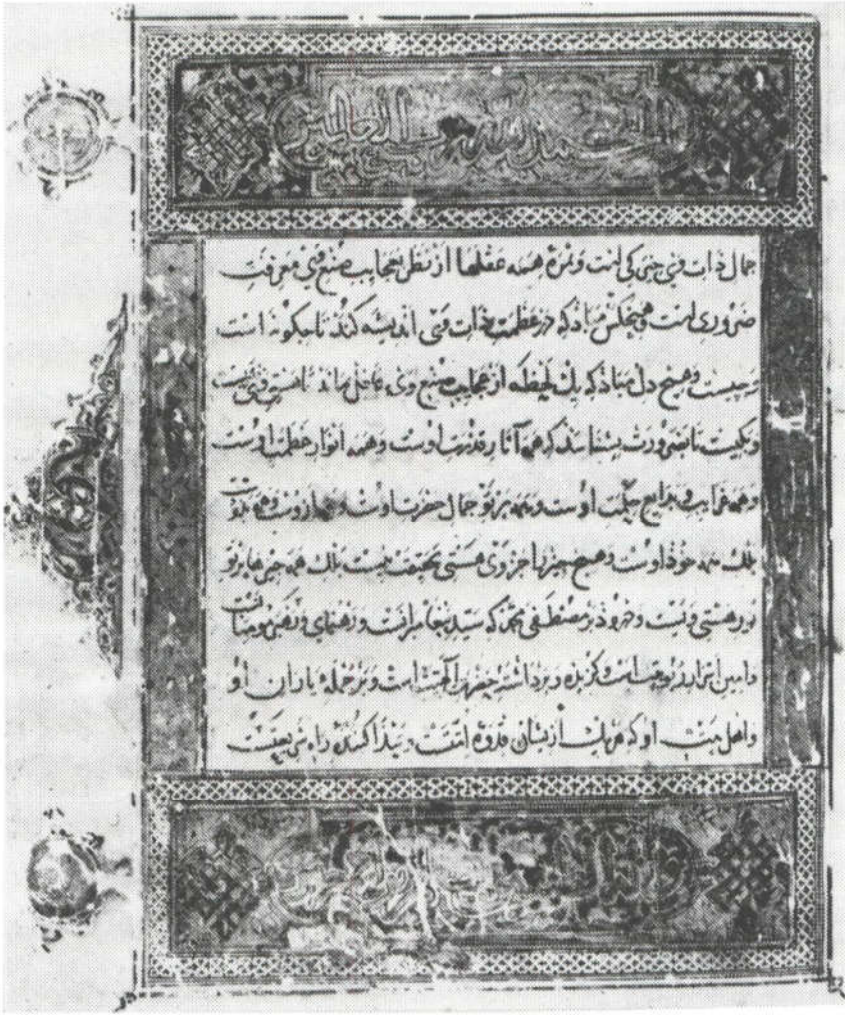 الحمد لله رب العالمین
جمال ذات وی حیرتی است و ثمرة همه عقلها از نظر بعجایب صنع وی معرفت
ضروری است و هیچکس مباذ که در عظمت ذات وی اندیشه کند تا چگونه است
و چیست و هیچ دل مباذ که یک لحظه از عجایب صنع وی غافل ماند تا هستی وی چیست
و بکیست تا بضرورت بشناسد که همه آثار قدرت اوست و همه انوار عظمت اوست
و همه غرایب و بدایع حکمت اوست و همه برتو جمال حضرت اوست و همه ازوست و همه بذوست
بلک همه خوذ اوست و هیچ جیز را جز وی هستی بحقیقت نیست بلک همه جیزها برتو
نور هستی ویست و دروذ بر مصطفی محمد که سید بیغامبرانست و رهنمای و رهبر مومنانست
و امین اسرار ربوبیت است و گزیده و برداشته حضرت الهیت است و بر جمله یاران او
و اهل بیت او که هر یک ازیشان قدوة امتست و بیذا کننده راه شریعتست